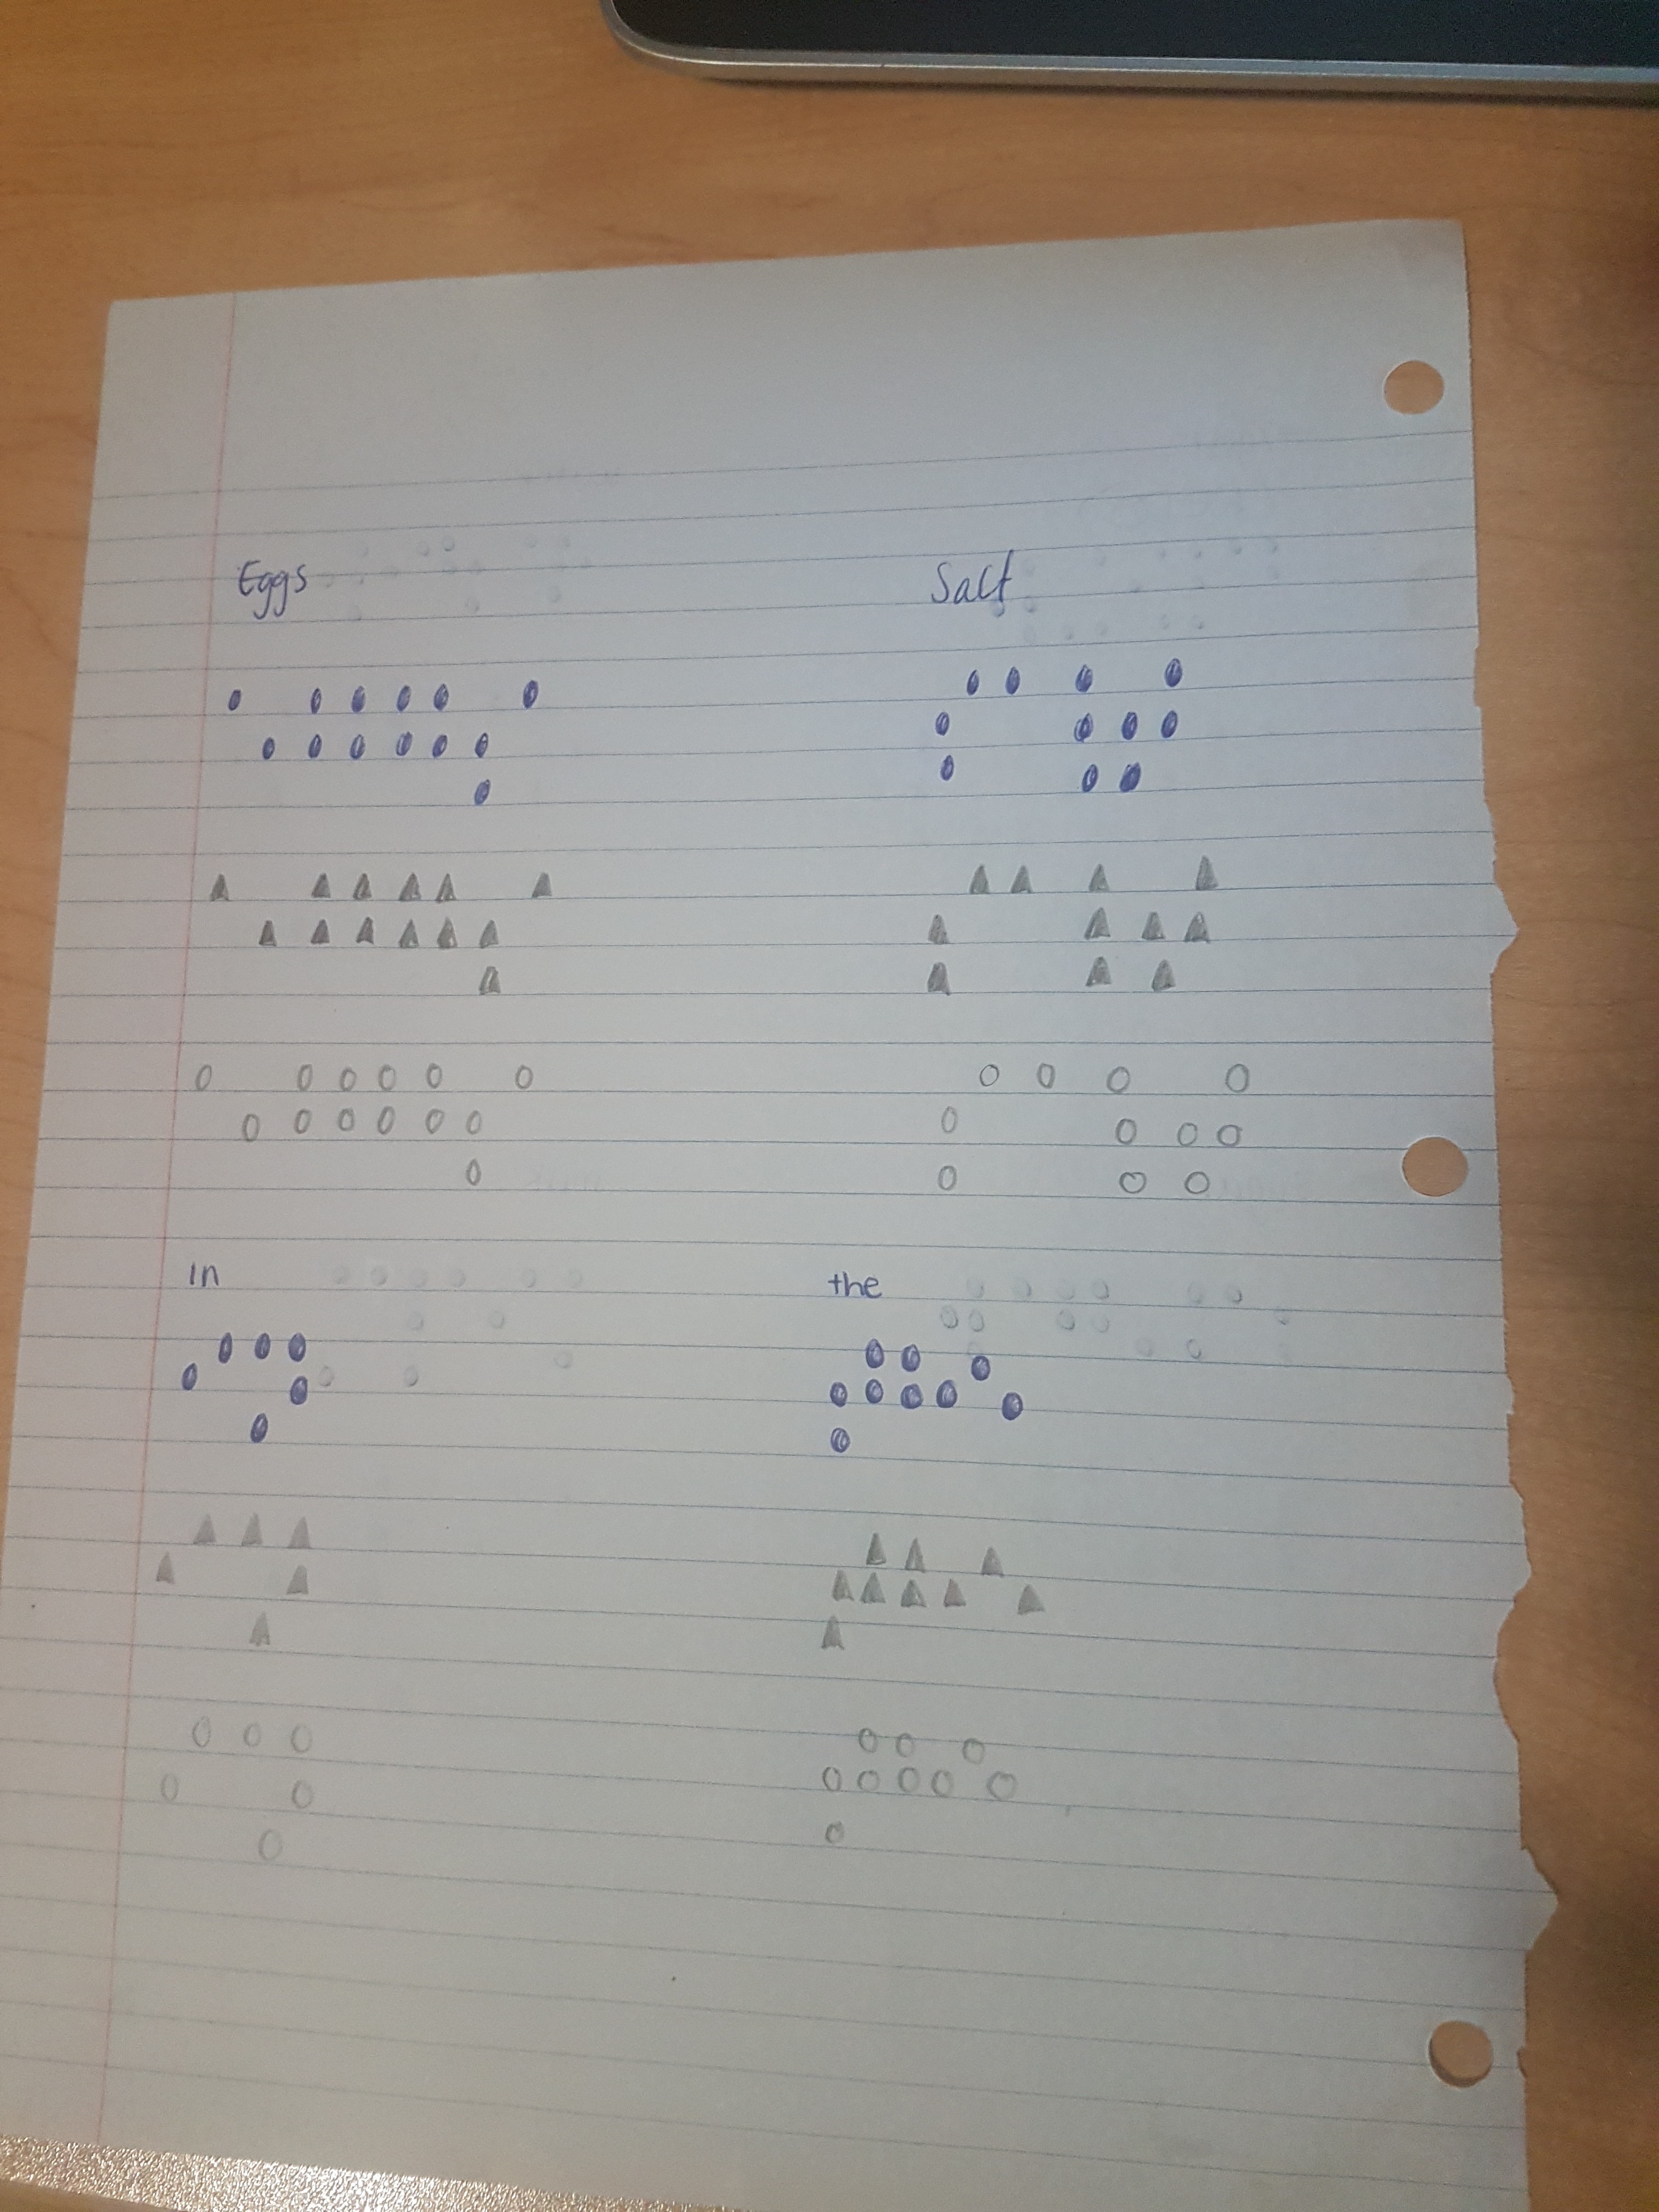 Eggs Salt
⠑⠛⠛⠎ ⠎⠁⠇⠞
⠑⠛⠛⠎ ⠎⠁⠇⠞
⠑⠛⠛⠎ ⠎⠁⠇⠞
in the
⠊⠝ ⠞⠓⠑
⠊⠝ ⠞⠓⠑
⠊⠝ ⠞⠓⠑